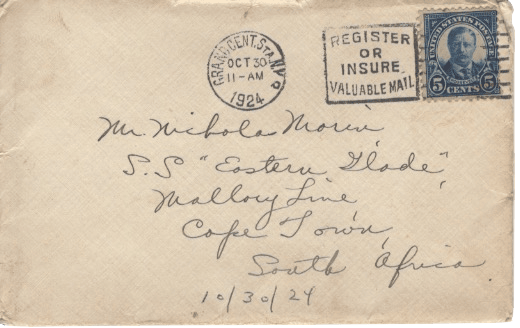 GRAND CENT. STA. N.Y.
OCT 30
11-AM
1924
REGISTER
OR
INSURE
VALUABLE MAIL
UNITED STATES POSTAGE
5 CENTS 5
Mr. Nicholas Morin,
S.S "Eastern Glade",
Mallory Line,
Cape Town,
South Africa.
10/30/24